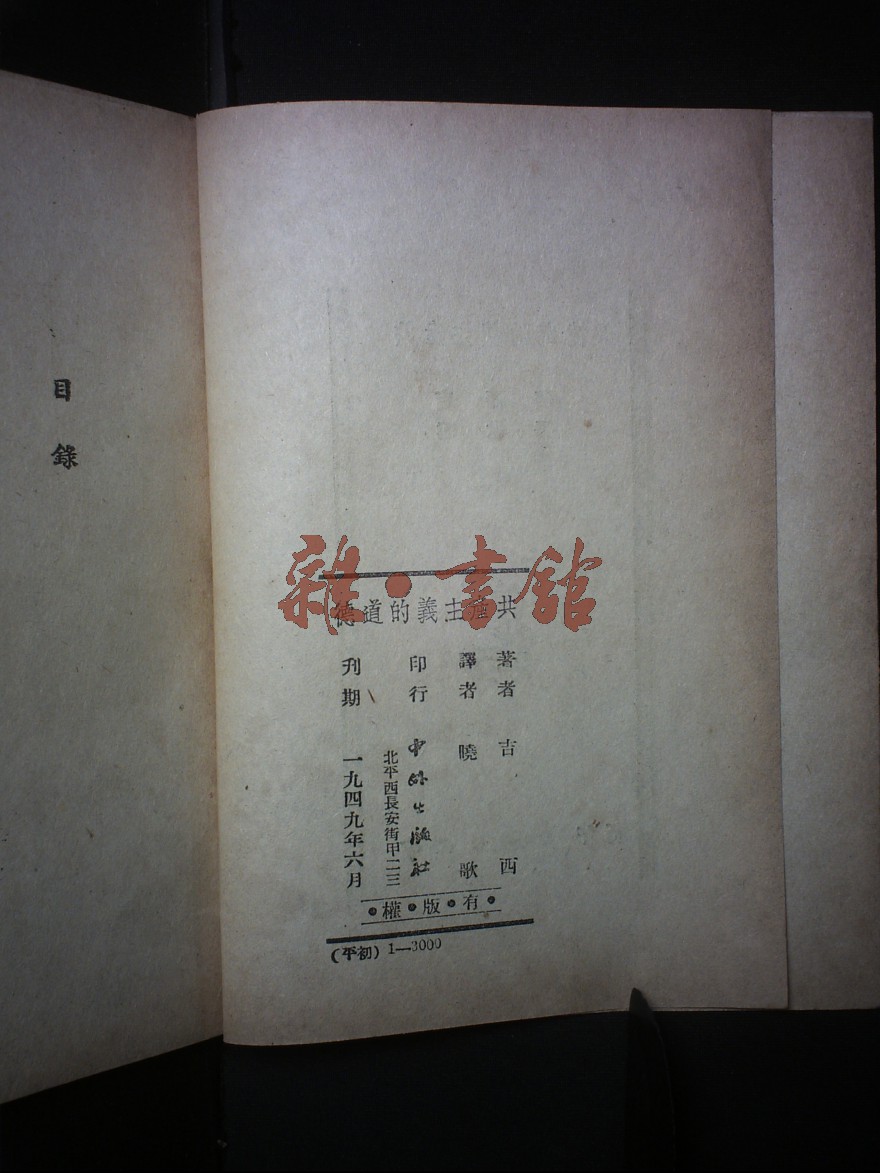 共產主義的道德
著者 吉西
譯者 曉歌
印行 中外出版社
北平西長安街甲二三
刊期 一九四九年六月
有•版•權
(平初) 1—3000
目錄
雜•書館